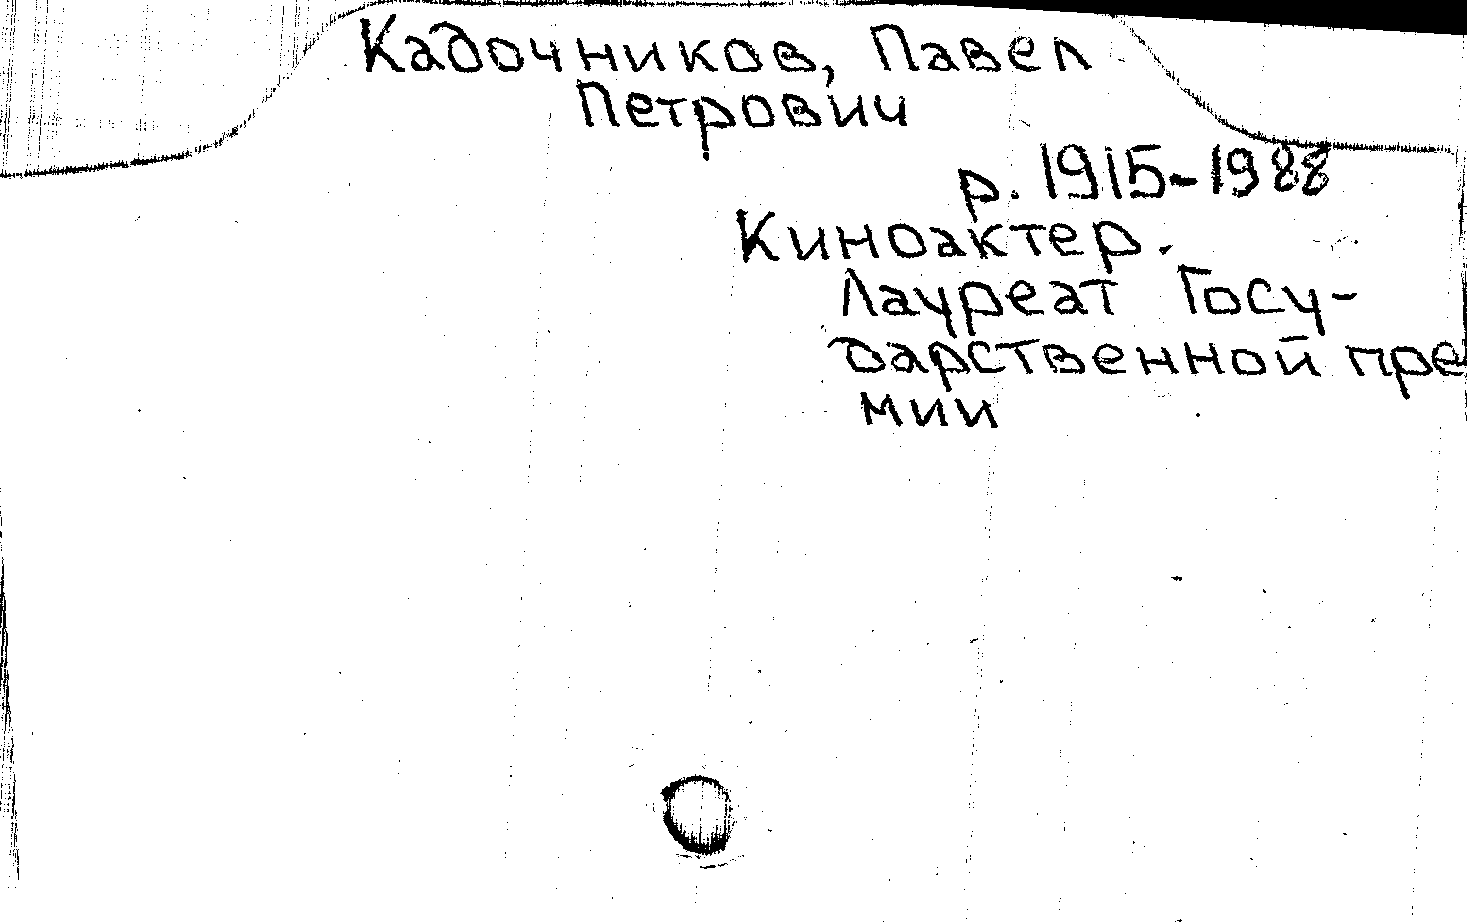 Кадочников, Павел
Петрович
р. 1915-1988
Киноактер.
Лауреат Госу-
дарственной пре
мии